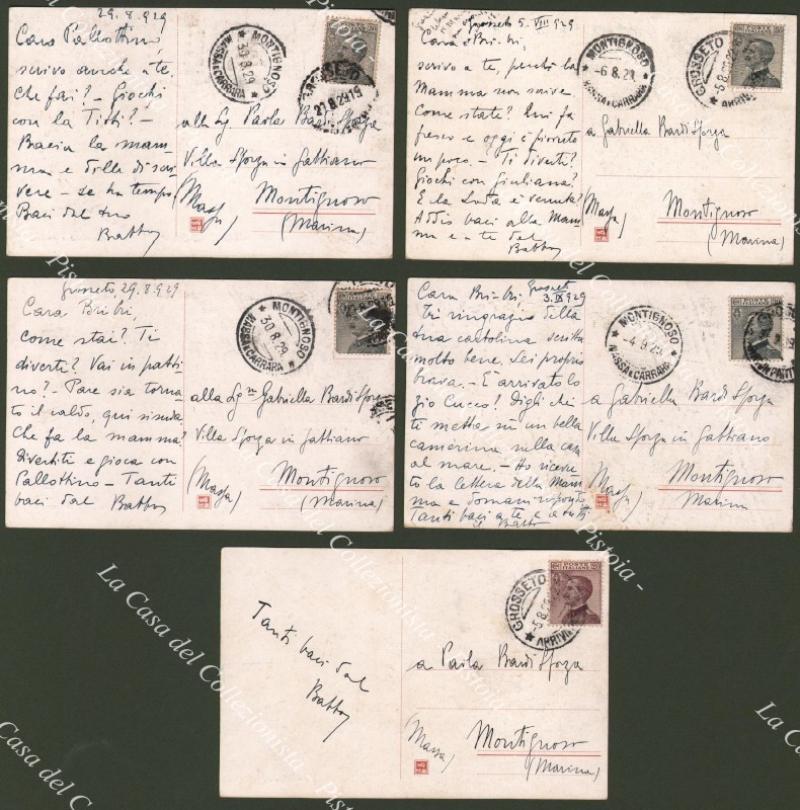 29.8.929
Caro Pallottino,
scrivo anche a te,
Che fai? - Giochi
con la Titti? -
Bacia la mam-
ma e dille di scri-
vere - se ha tempo
Baci dal tuo
Babbo
MONTIGNOSO
30.8.29
MASSA E CARRARA
GROSSETO
alla Sg. Paola Bardi Sforza
Villa Sforza in Gattiano
(Massa)
Montignoso
(Marina)
Grosseto 5. VIII 929
Cara Bri-bri,
scrivo a te, perché la
Mamma non scrive.
Come state? Qui fa
fresco e oggi è piovuto
un poco. - Ti diverti?
Giochi con Giuliana?
E la è venuta?
Addio baci alla Mam-
ma e a te dal
Babbo
MONTIGNOSO
-6.8.29
MASSA E CARRARA
GROSSETO
-5.8
ARRIVI
a Gabriella Bardi Sforza
(Massa)
Montignoso
(Marina)
Grosseto, 29.8.929
Cara Bribri,
come stai? Ti
diverti? Vai in patti-
no? - Pare sia torna-
to il caldo, qui si suda.
Che fa la mamma?
Divertiti e gioca con
Pallottino - Tanti
baci dal Babbo
MONTIGNOSO
30.8.29
MASSA E CARRARA
alla Sg.na Gabriella Bardi Sforza
Villa Sforza in Gattiano
(Massa)
Montignoso
(Marina)
Grosseto
3.IX 929
Cara Bri-bri!
Ti ringrazio della
tua cartolina scritta
molto bene. Sei proprio
brava. - È arrivato lo
zio Cucco? Digli che
ti metta in un bella
camerina nella casa
al mare. - Ho ricevu-
to la lettera della Mam-
ma e domani rispondo
Tanti baci a te e a tutti
il Babbo
MONTIGNOSO
-4.9.29
MASSA E CARRARA
a Gabriella Bardi Sforza
Villa Sforza in Gattiano
(Massa)
Montignoso
Marina
Tanti baci dal
Babbo
GROSSETO
-5.8.29
ARRIVI
a Paola Bardi Sforza
(Massa)
Montignoso
(Marina)
La Casa del Collezionista - Pistoia -